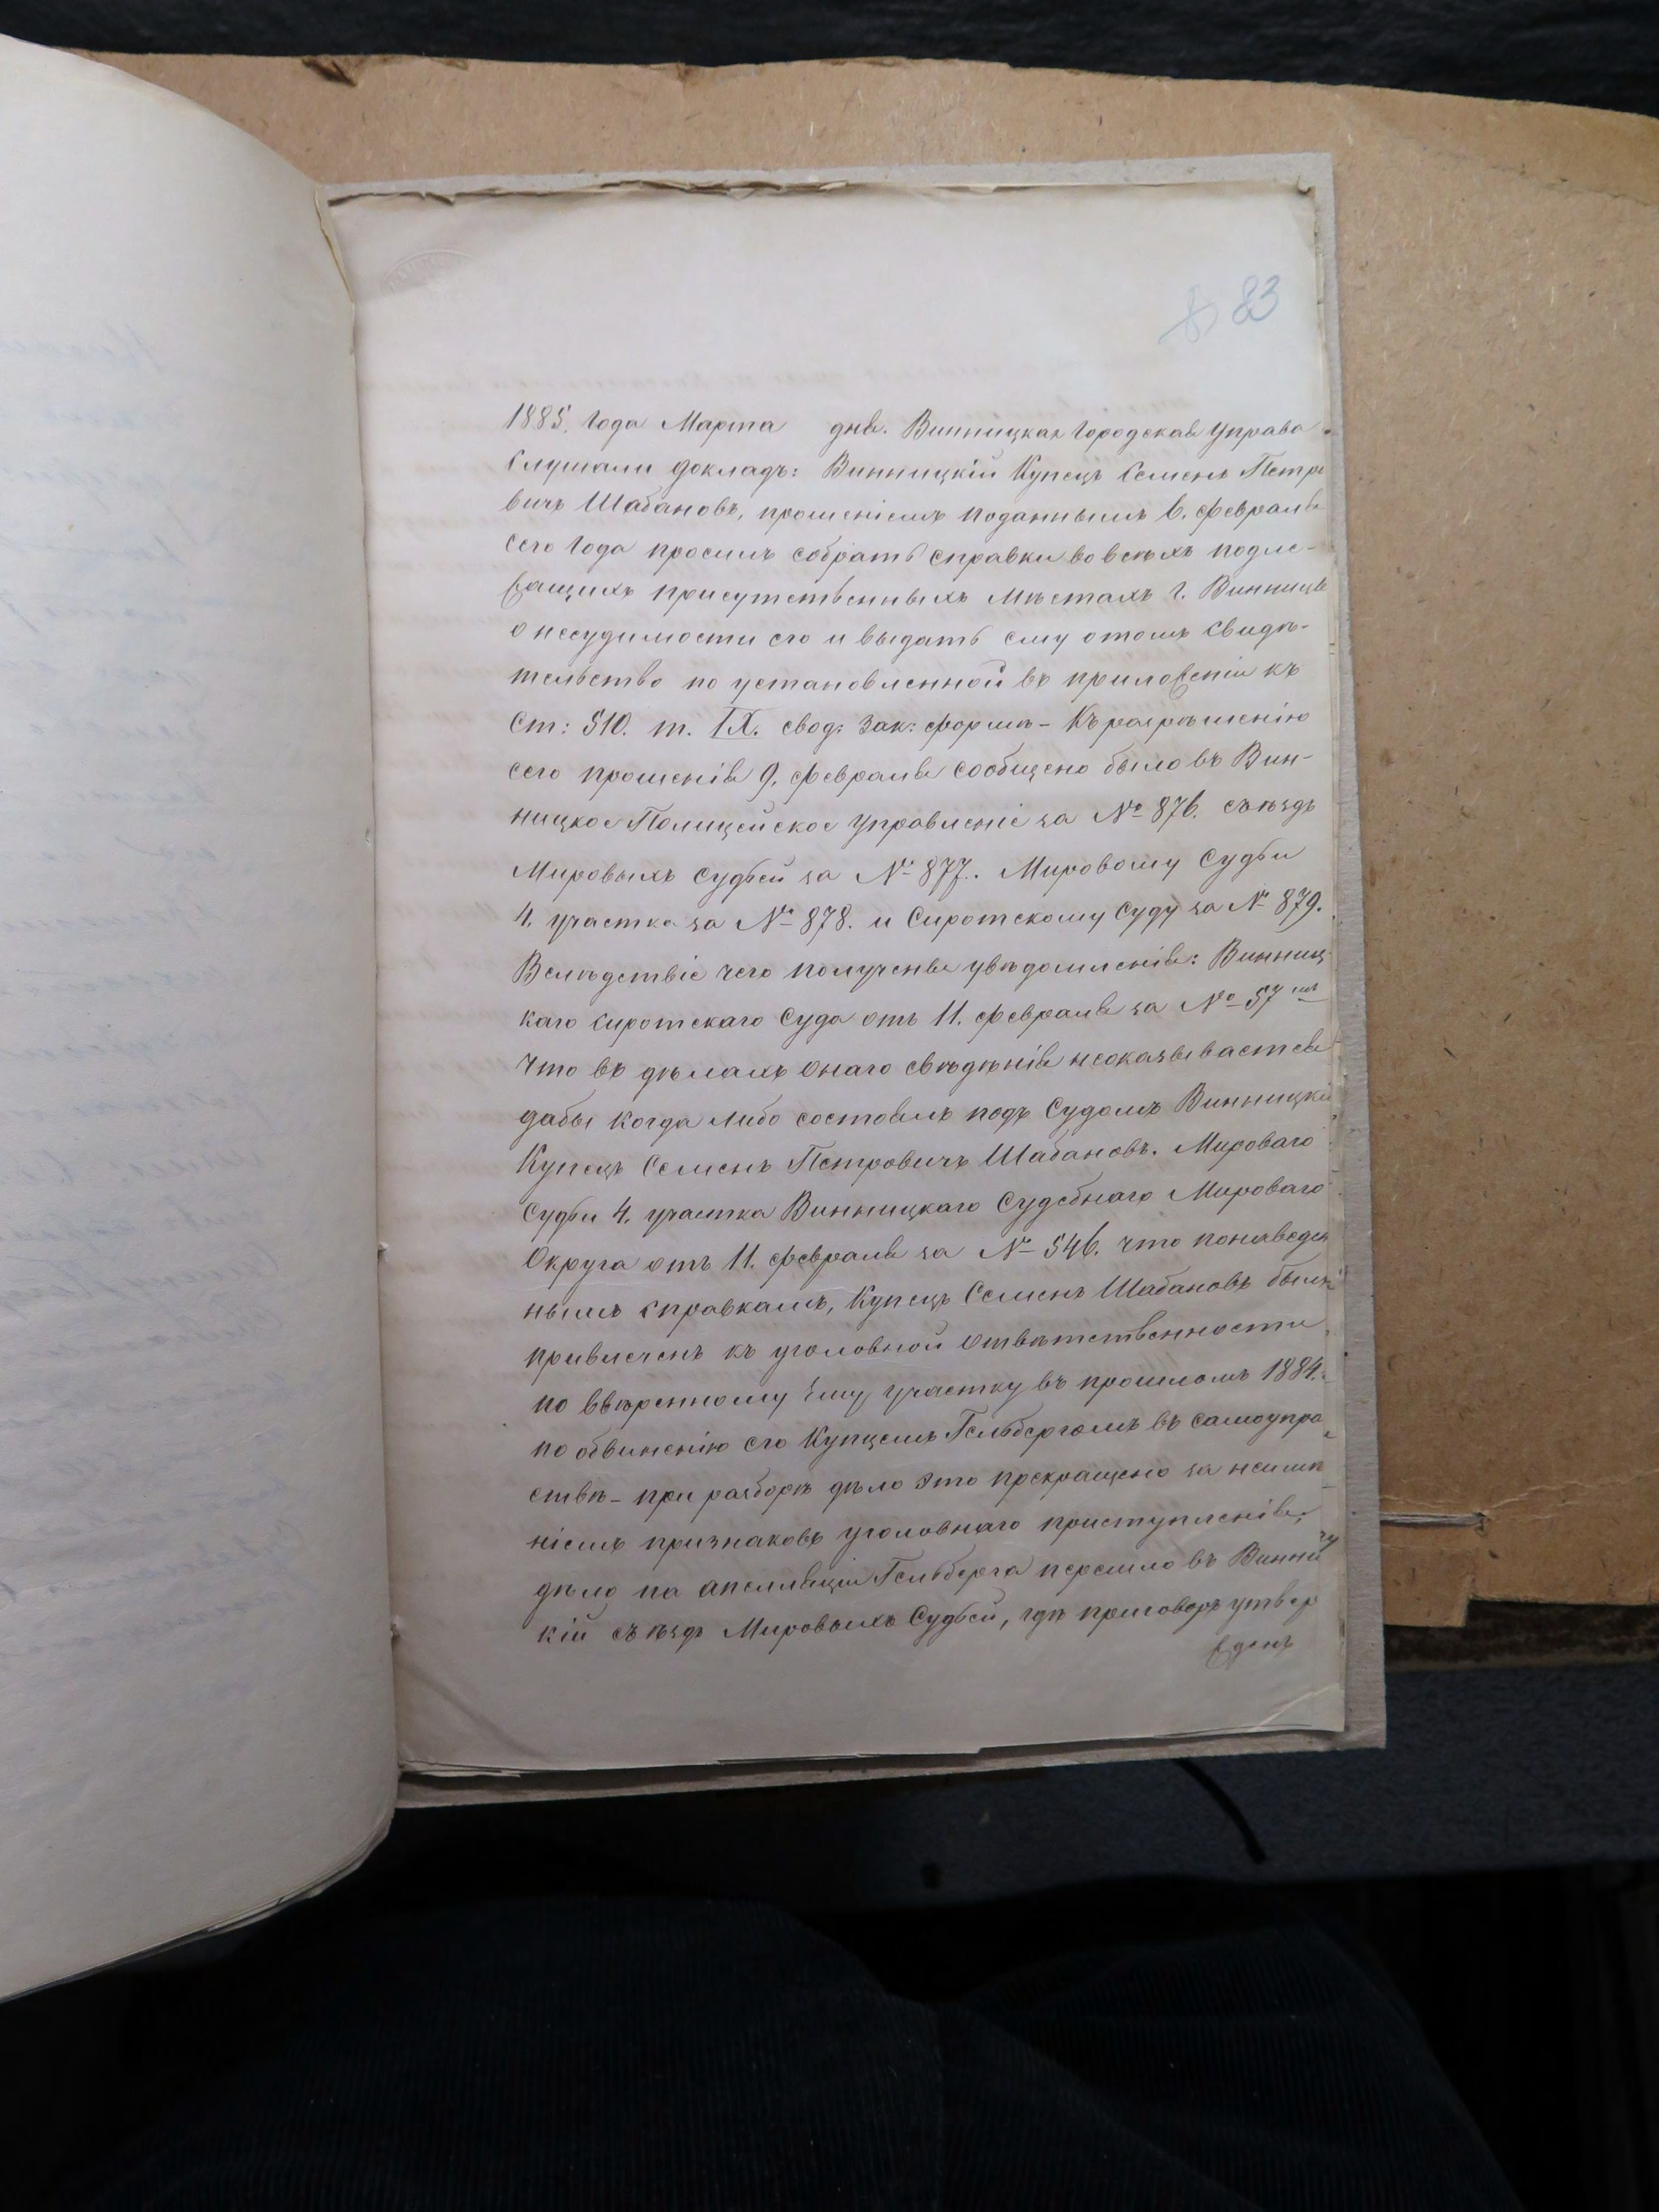 83
1885. Года Марта дня. Винницкая Городская Управа
Слушали докладъ: Винницкій Купецъ Семенъ Петро
вичъ Шабановъ, прошеніемъ поданнымъ 6. Февраля
сего Года просилъ собрать справки во всѣхъ подле-
жащихъ присутственныхъ Мѣстахъ г. Винницы
о несудимости его и выдать ему о томъ Свидѣ-
тельство по установленной въ приложеніи къ
Ст: 510. т. IX. свод: Зак: формѣ - Къ разрѣшенію
сего прошенія 9. Февраля сообщено было въ Вин-
ницкое Полицейское Управленіе за № 876. съѣздъ
Мировыхъ Судьей за № 877. Мировому Судьи
4. участка за № 878. и Сиротскому Суду за № 879.
Вслѣдствіе чего получены увѣдомленія: Винниц
каго Сиротскаго Суда отъ 11. Февраля за № 57
что въ дѣлахъ онаго свѣдѣнія неоказывается
дабы когда либо состоялъ подъ Судомъ Винницкій
Купецъ Семенъ Петровичъ Шабановъ. Мироваго
Судьи 4. участка Винницкаго Судебнаго Мироваго
Округа отъ 11. Февраля за № 546. что понаведен
нымъ справкамъ, Купецъ Семенъ Шабановъ былъ
привлеченъ къ уголовной отвѣтственности
по ввѣренному Ему участку въ прошломъ 1884.
по обвиненію его Купцемъ Гельбергомъ въ самоупра
ствѣ - при разборѣ дѣло это прекращено за неимѣ
ніемъ признаковъ уголовнаго приступленія,
дѣло на апеляціи Гельберга перешло въ Винниц
кій съѣздъ Мировыхъ Судьей, гдѣ приговоръ утвер
жденъ